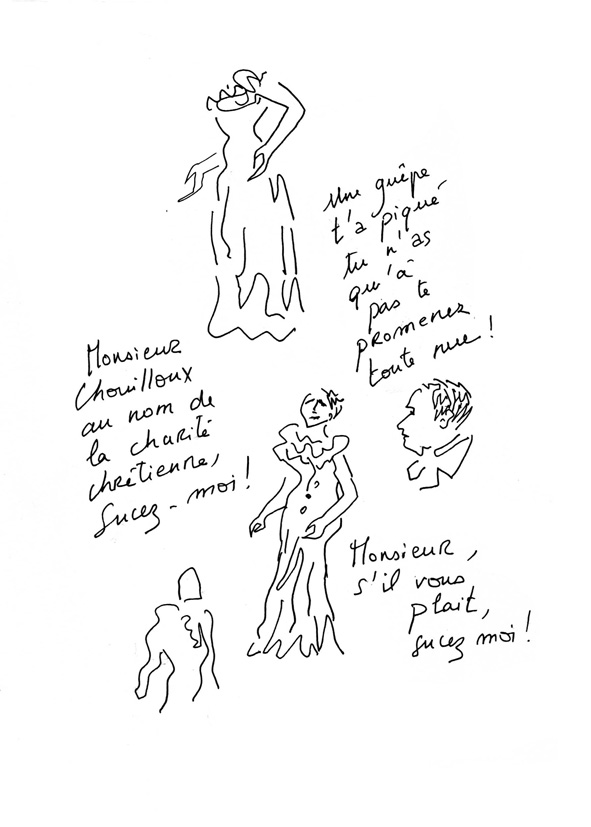 Une guêpe
t'a piqué
tu n'as
qu'à
pas te
promener
toute nue !
Monsieur
Chouilloux
au nom de
la charité
chrétienne,
sucez-moi !
Monsieur,
s'il vous
plait,
sucez moi !